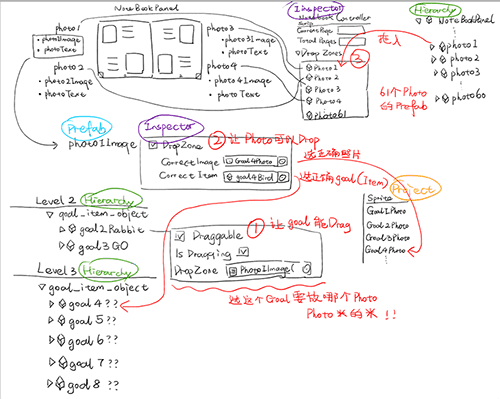 NoteBookPanel
photo1
• photo1Image
• photoText
photo 2
• photo2Image
• photoText
photo3
• photo3Image
• photoText
photo4
• photo4Image
• photoText
Inspector
NoteBook Controller
Script
Current Page
Total Pages
Drop Zones
Photo 1
Photo 2
Photo 3
Photo 4
Photo61
③
拖入
Hierarchy
NoteBookPanel
photo1
photo 2
photo 3
photo60
61个Photo
的Prefab
Prefab
photo1Image
Inspector
② 让Photo可以Drop
DropZone
CorrectImage
Goal4Photo
Correct Item
goal4Bird
选正确照片
选正确goal(Item)
Project
Sprite
Goal1Photo
Goal2Photo
Goal3Photo
Goal4Photo
Level 2 Hierarchy
goal_item_object
goal2Rabbit
goal3GO
① 让goal能Drag
Draggable
Is Dragging
DropZone
Photo1Image(
选这个Goal要放哪个Photo
Photo米的米!!
Level 3 Hierarchy
goal_item_object
goal 4 ??
goal 5 ??
goal 6 ??
goal 7 ??
goal 8 ??